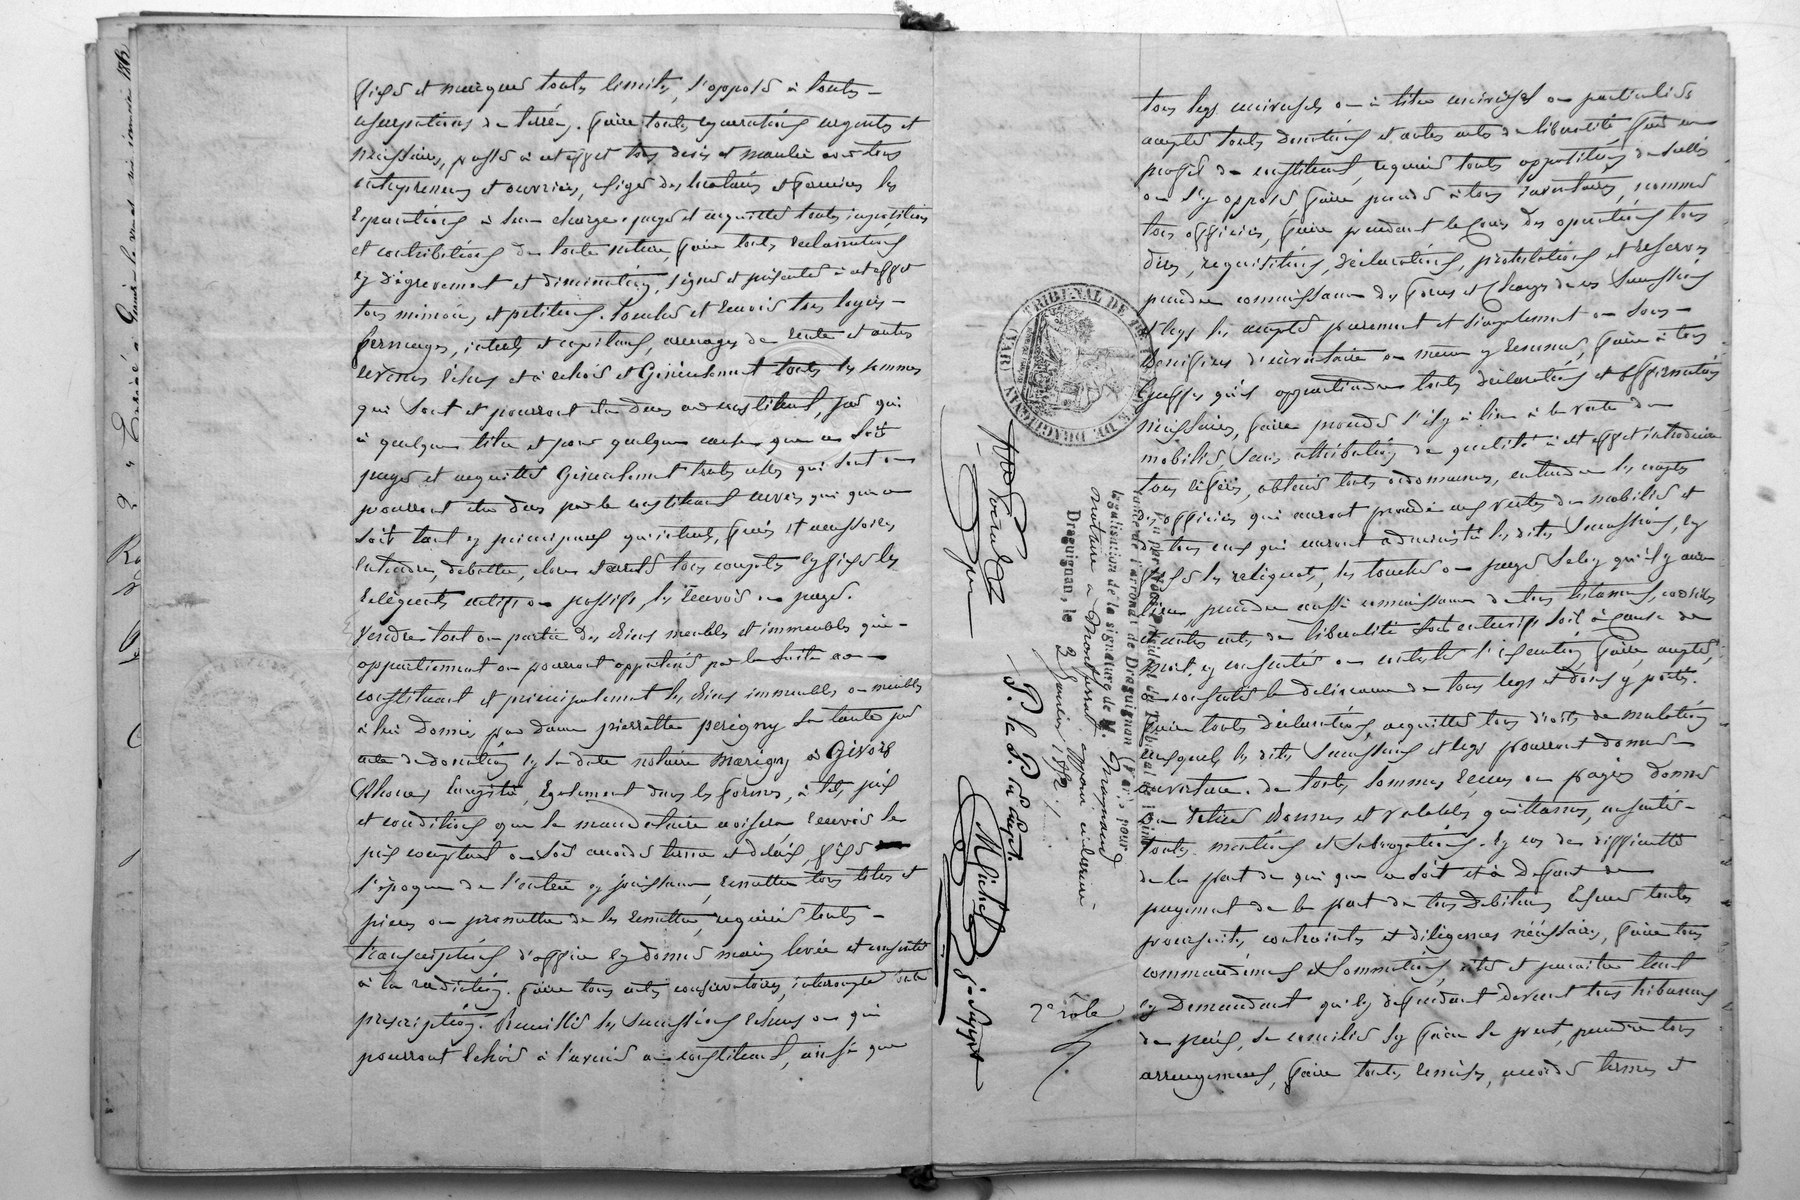 fixer et marquer toutes limites, s'opposer à toutes
usurpations de terrein. faire toutes reparations urgentes et
nécessaires, passer à cet effet tous devis et marchés avec tous
entrepreneurs et ouvriers, exiger des locataires et fermiers les
réparations à leur charge, payer et acquitter toutes impositions
et contributions de toute nature, faire toutes réclamations
en dégrevement et diminution, signer et présenter à cet effet
tous mémoires et pétitions. toucher et recevoir tous loyers
fermages, interets et capitaux, arrérages de rente et autres
revenus échus et à echoir et Généralement toutes les sommes
qui sont et pourront etre dues au constituant, par qui
à quelque titre et pour quelque cause que ce soit
payer et acquitter Généralement toutes celles qui sont ou
pourront etre dues par le constituant envers qui que ce
soit tant en principaux qu'interets, frais et accessoires
entendre, debattre, clore et arreter tous comptes en fixer les
reliquats actifs ou passifs, les recevoir ou payer.
Vendre tout ou partie des biens meubles et immeubles qui
appartiennent ou pourront appartenir par la suite au
constituant et principalement les biens immeubles ou meubles
à lui Donnés par dame pierrette perigny sa tante par
acte de donation en sa date notaire Marigny à Givors
Rhone, Egalement dans les formes, à tels prix
et conditions que le mandataire avisera recevoir le
prix comptant ou soit accorder terme et délais, fixer
l'époque de l'entrée en jouissance, remettre tous titres et
pieces ou promettre de les remettre, requérir toutes
transcriptions d'office en donner main levée et consentir
à la radiation. faire tous actes conservatoires, interrompre toute
prescription. Recueillir les successions echues ou qui
pourront echoir à l'avenir au constituant, ainsi que
TRIBUNAL DE DRAGUIGNAN (VAR)
Vu par Nous, président du Tribunal de 1
l'arrond. de Draguignan (Var), pour
légalisation de la signature de M. Maynard
notaire à Montferrat, apposée ci-derrière
Draguignan, le 2 Janvier 1862 /.
P. le P.
Michel
2e rôle
tous legs universels ou à titre universel ou particuliers
accepter toutes donations et autres actes de liberalité faits au
profit du constituant, requérir toutes appositions de scellés
ou s'y opposer faire procéder à tous inventaires, nommer
tous officiers, faire pendant le Cours des operations tous
dires, requisitions, déclarations, protestations et réserves
prendre connaissance des forces et Charges de ces Successions
et legs les accepter purement et simplement ou sous
benefices d'inventaire ou meme y renoncer, faire à tous
Greffes qu'il appartiendra toutes déclarations et affirmations
nécessaires, faire procéder s'il y a lieu à la vente du
mobilier sans attribution de qualité à cet effet introduire
tous référés, obtenir toutes ordonnances, entendre les comptes
des officiers qui auront procédé aux ventes de mobilier et
de tous ceux qui auront administré les dites Successions, en
fixer les reliquats, les toucher ou payer selon qu'il y aura
lieu, prendre aussi connaissance de tous testaments, codicilles
et autres actes de liberalité soit entre vifs soit à cause de
mort, en consentir ou contester l'exécution, faire, accepter,
ou consentir la délivrance de tous legs et dons y portés.
faire toutes déclarations, acquitter tous droits de mutation
auxquels les dites Successions et legs pourront donner
ouverture. de toutes sommes recues ou payées donner
ou retirer bonnes et valables quittances, consentir
toutes mentions et subrogations. En cas de difficulté
de la part de qui que ce soit et à Defaut de
payement de la part de tous débiteurs exercer toutes
poursuites, contraintes et diligences nécéssaires, faire tous
commandemens et Sommations, citer et paraitre tant
en Demandant qu'en defendant devant tous tribunaux
de paix, se concilier si faire se peut, prendre tous
arrangemens, faire toutes remises, accorder termes et